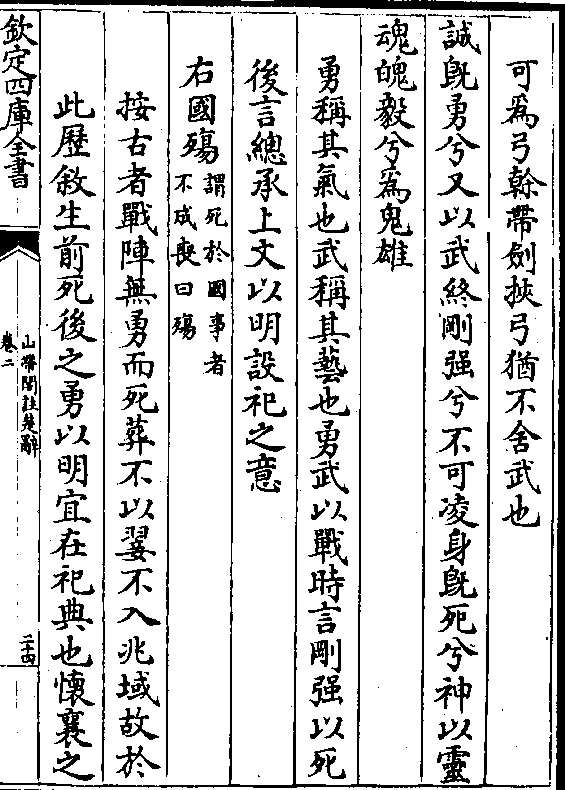 可為弓幹帶劍挾弓猶不舍武也
誠既勇兮又以武終剛强兮不可凌身既死兮神以靈
魂魄毅兮為鬼雄
勇稱其氣也武稱其藝也勇武以戰時言剛强以死
後言總承上文以明設祀之意
右國殤謂死於國事者
不成喪曰殤
按古者戰陣無勇而死葬不以翣不入兆域故於
此歷敘生前死後之勇以明宜在祀典也懷襄之
欽定四庫全書
山帶閣註楚辭
卷二
二十四